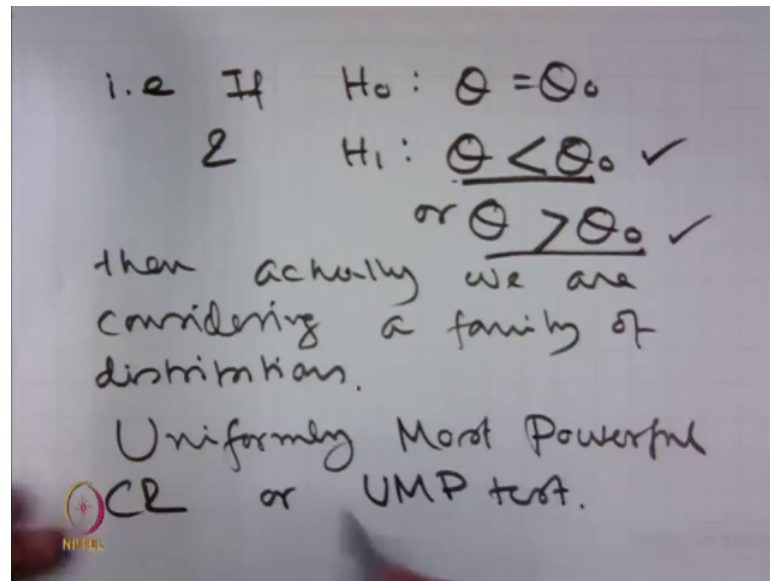 i.e If H₀ : θ = θ₀
& H₁ : θ < θ₀ ✓
or θ > θ₀ ✓
then actually we are
considering a family of
distributions.
Uniformly Most Powerful
CR or UMP test.
NPTEL